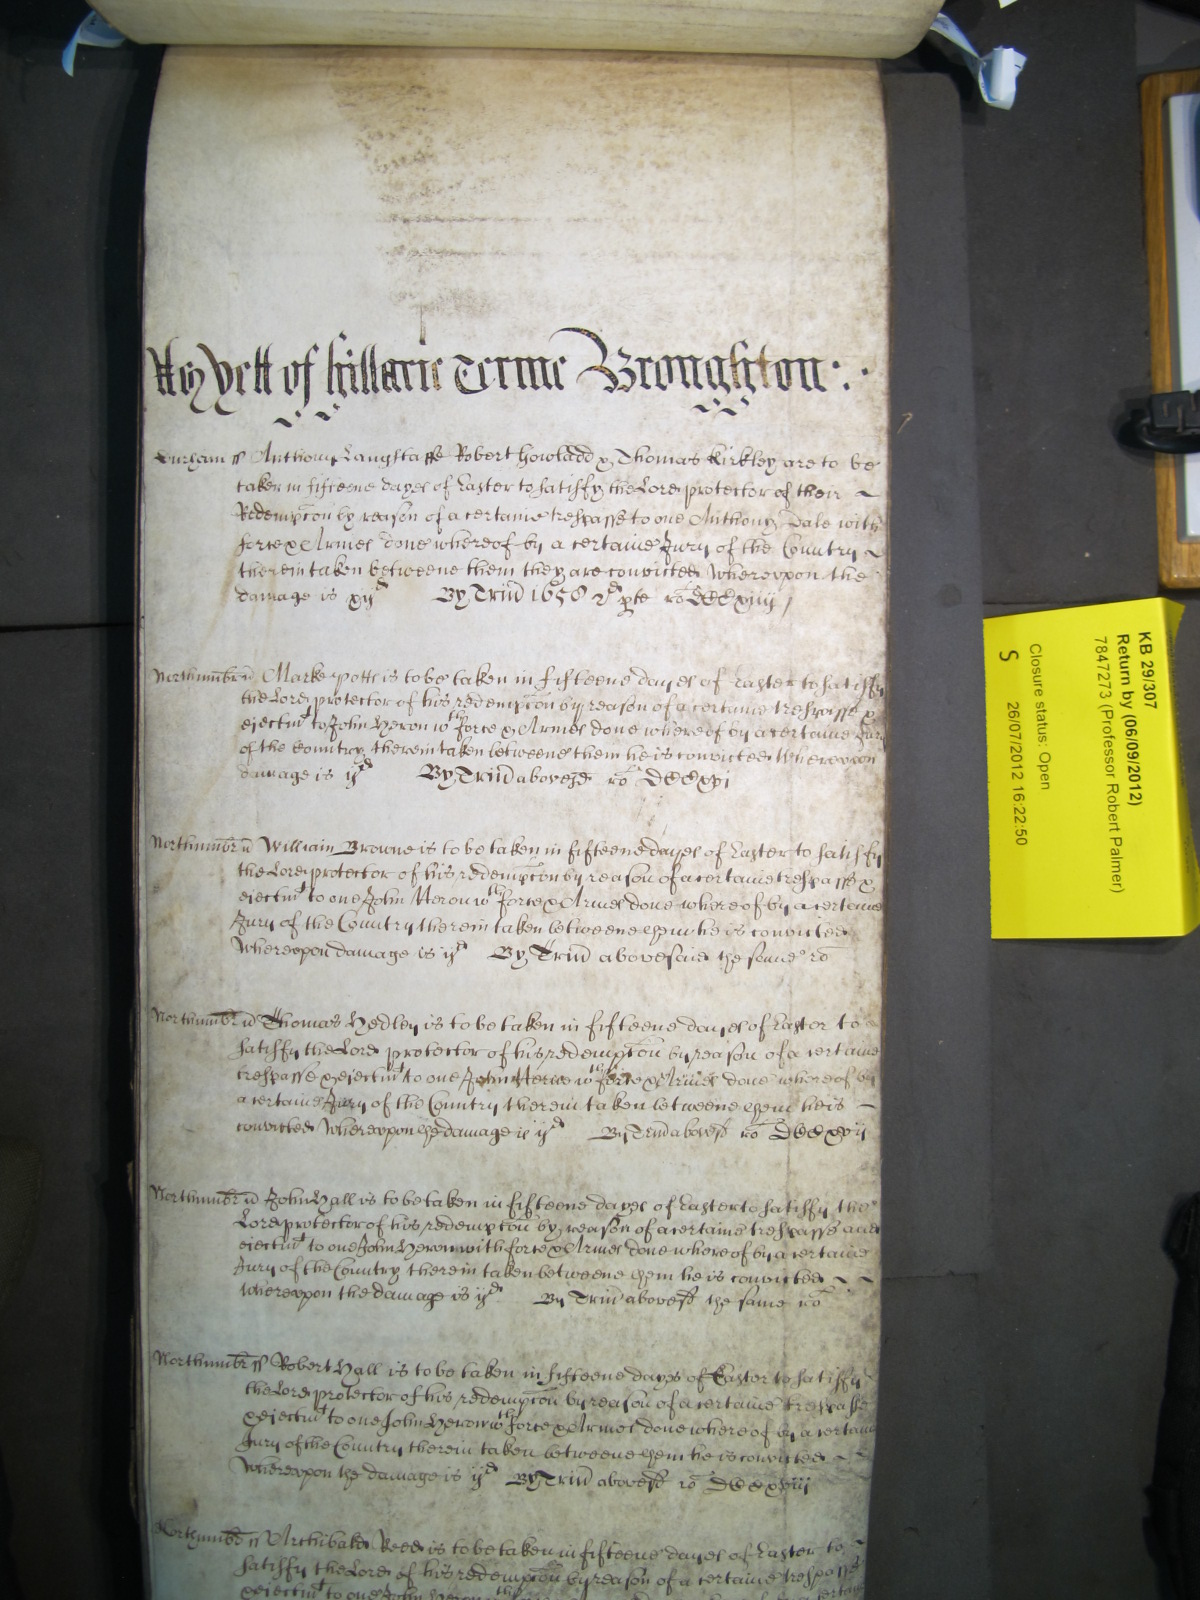 Yett of Hillarie Terme Broughton
Durham ss Anthony Langstaffe Robert Howladd & Thomas Kirkley are to be
taken in fifteene dayes of Easter to satisfy the Lord protector of their
Redempcon by reason of a certaine trespasse to one Anthony Dale with
force & Armes done whereof by a certaine Jury of the Country
therein taken betweene them they are convicted Whereupon the
damage is xijd By Trin 1656 ro
Northumbr Marke Potts is to be taken in fifteene dayes of Easter to satisfy
the Lord protector of his redempcon by reason of a certaine trespasse &
ejectmt to John Heron wth force & Armes done whereof by a certaine Jury
of the Country therein taken betweene them he is convicted Whereupon
damage is ijd By Trin abovesd ro DCCxvi
Northumbr William Browne is to be taken in fifteene dayes of Easter to satisfy
the Lord protector of his redempcon by reason of a certaine trespasse &
ejectmt to one John Heron wth force & Armes done whereof by a certaine
Jury of the Country therein taken betweene them he is convicted
Whereupon damage is ijd By Trin abovesaid the same ro
Northumbr Thomas Hedley is to be taken in fifteene dayes of Easter to
satisfy the Lord protector of his redempcon by reason of a certaine
trespasse & ejectmt to one John Heron wth force & Armes done whereof by
a certaine Jury of the Country therein taken betweene them he is
convicted Whereupon the damage is ijd By Trin abovesd ro DCCxvij
Northumbr John Hall is to be taken in fifteene dayes of Easter to satisfy the
Lord protector of his redempcon by reason of a certaine trespasse and
ejectmt to one John Heron with force & Armes done whereof by a certaine
Jury of the Country therein taken betweene them he is convicted
Whereupon the damage is ijd By Trin abovesd the same ro
Northumbr ss Robert Hall is to be taken in fifteene dayes of Easter to satisfy
the Lord protector of his redempcon by reason of a certaine trespasse
& ejectmt to one John Heron wth force & Armes done whereof by a certaine
Jury of the Country therein taken betweene them he is convicted
Whereupon the damage is ijd By Trin abovesd ro DCCxviij
Northumbr ss Archibald Reed is to be taken in fifteene dayes of Easter to
satisfy the Lord of his redempcon by reason of a certaine trespasse
& ejectmt to one John Heron wth
KB 29/307
Return by (06/09/2012)
7847273 (Professor Robert Palmer)
Closure status: Open
S 26/07/2012 16:22:50